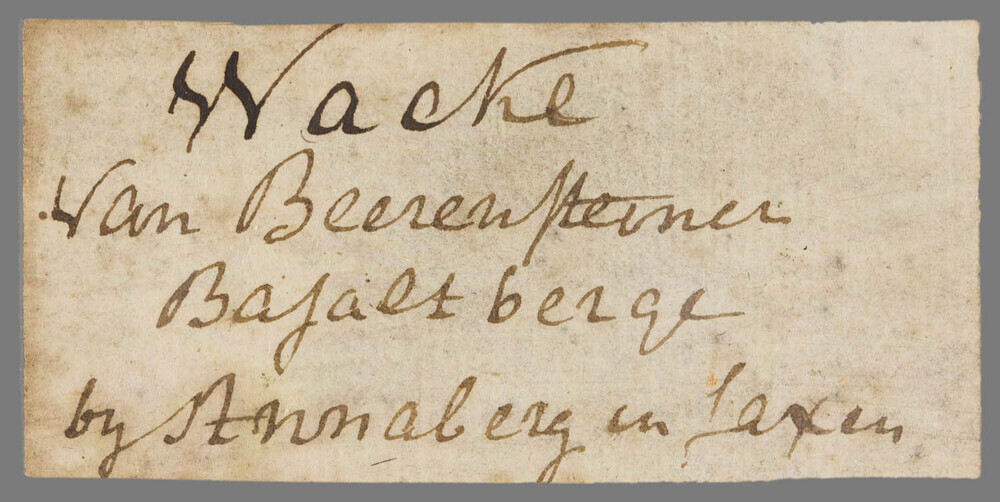 Wacke
Van Beerensteiner
Basalt berge
by Annaberg in Saxen